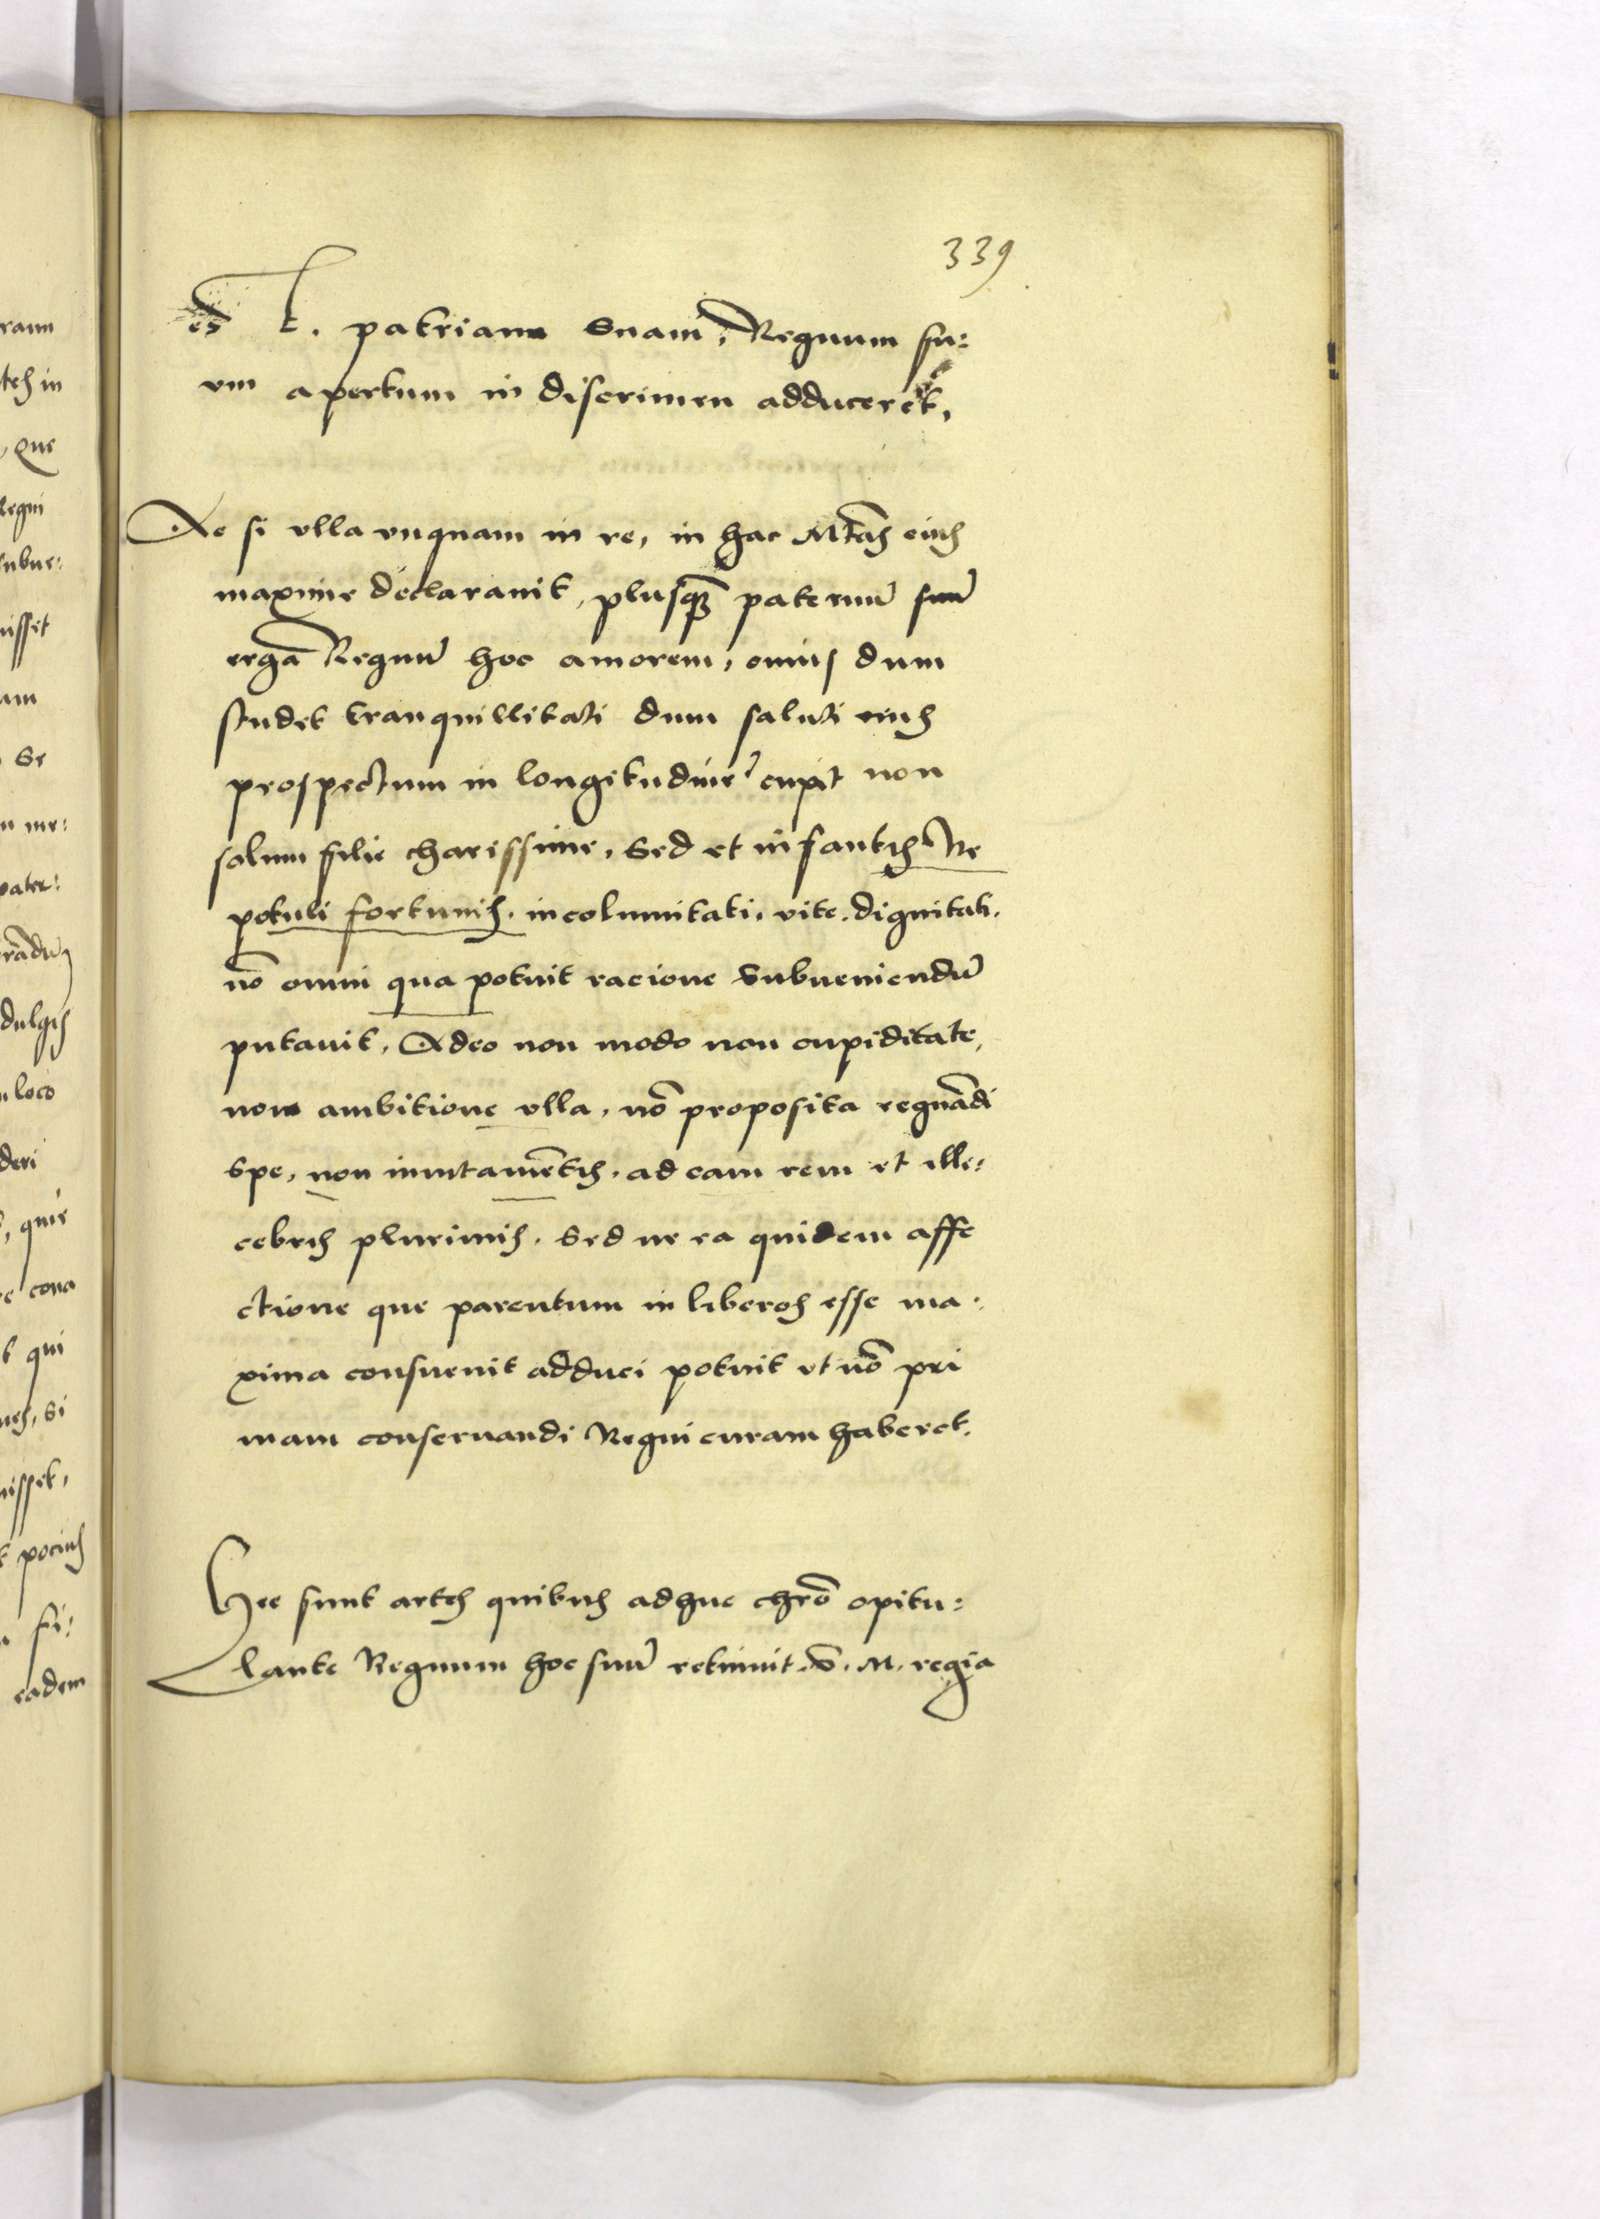 339
es t. patriam suam, Regnum su:
um apertum in discrimen adduceret,
Ac si ulla unquam in re, in hac Mtas eius
maxime declaravit, plusq̃ paternũ suũ
erga Regnũ hoc amorem, cuius dum
studet tranquillitati dum saluti eius
prospectum in longitudinẽ cupit non
solum filie charissime, Sed et infantis Ne
potuli fortunis. incolumitati. vite. dignitati.
nõ omni qua potuit racione Subueniendũ
putauit, Adeo non modo non cupiditate,
non ambitione ulla, nõ proposita regnãdi
Spe, non inuitamẽtis, ad eam rem et ille:
cebris plurimis. Sed ne ea quidem affe
ctione que parentum in liberos esse ma.
xima consueuit adduci potuit ut nõ pri
mam conseruandi Regni curam haberet.
Hee sunt artes quibus adhuc chrõ opitu:
lante Regnum hoc suũ retinuit. V. M. regia
raun
tes in
, Que
Regni
subue:
uisset
am
Se
n me:
pater:
dulgis
n loco
deri
, quie
e cona
t qui
ues, Si
uisset,
t pocius
fi:
eadem